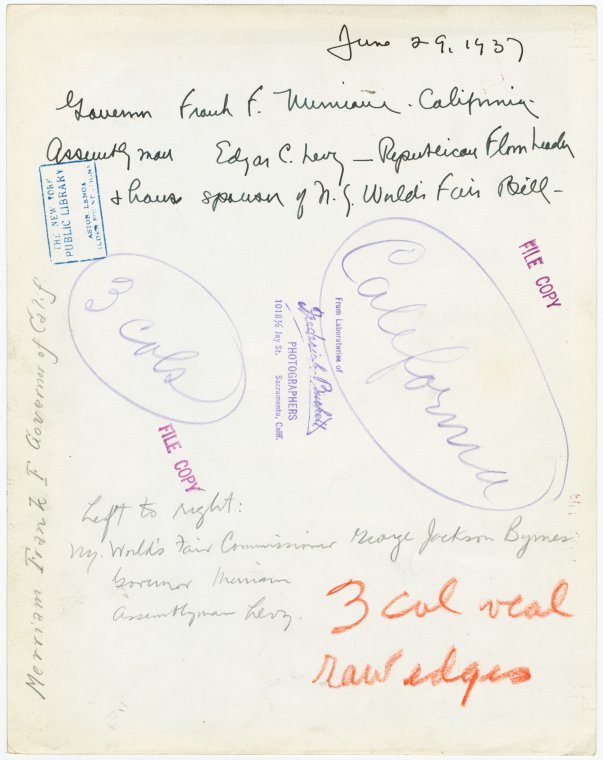 June 29, 1937
Governor Frank F. Merriam. California.
Assemblyman Edgar C. Levy — Republican Floor Leader
& house sponsor of N.Y. World's Fair Bill —
THE NEW YORK
PUBLIC LIBRARY
ASTOR LENOX
FILE COPY
3 cols
From Laboratories of
PHOTOGRAPHERS
1018½ Jay St. Sacramento, Calif.
California
FILE COPY
Merriam Frank F Governor of Calif
Left to right:
N.Y. World's Fair Commissioner George Jackson Byrnes
Governor Merriam
Assemblyman Levy.
3 col veal
raw edges